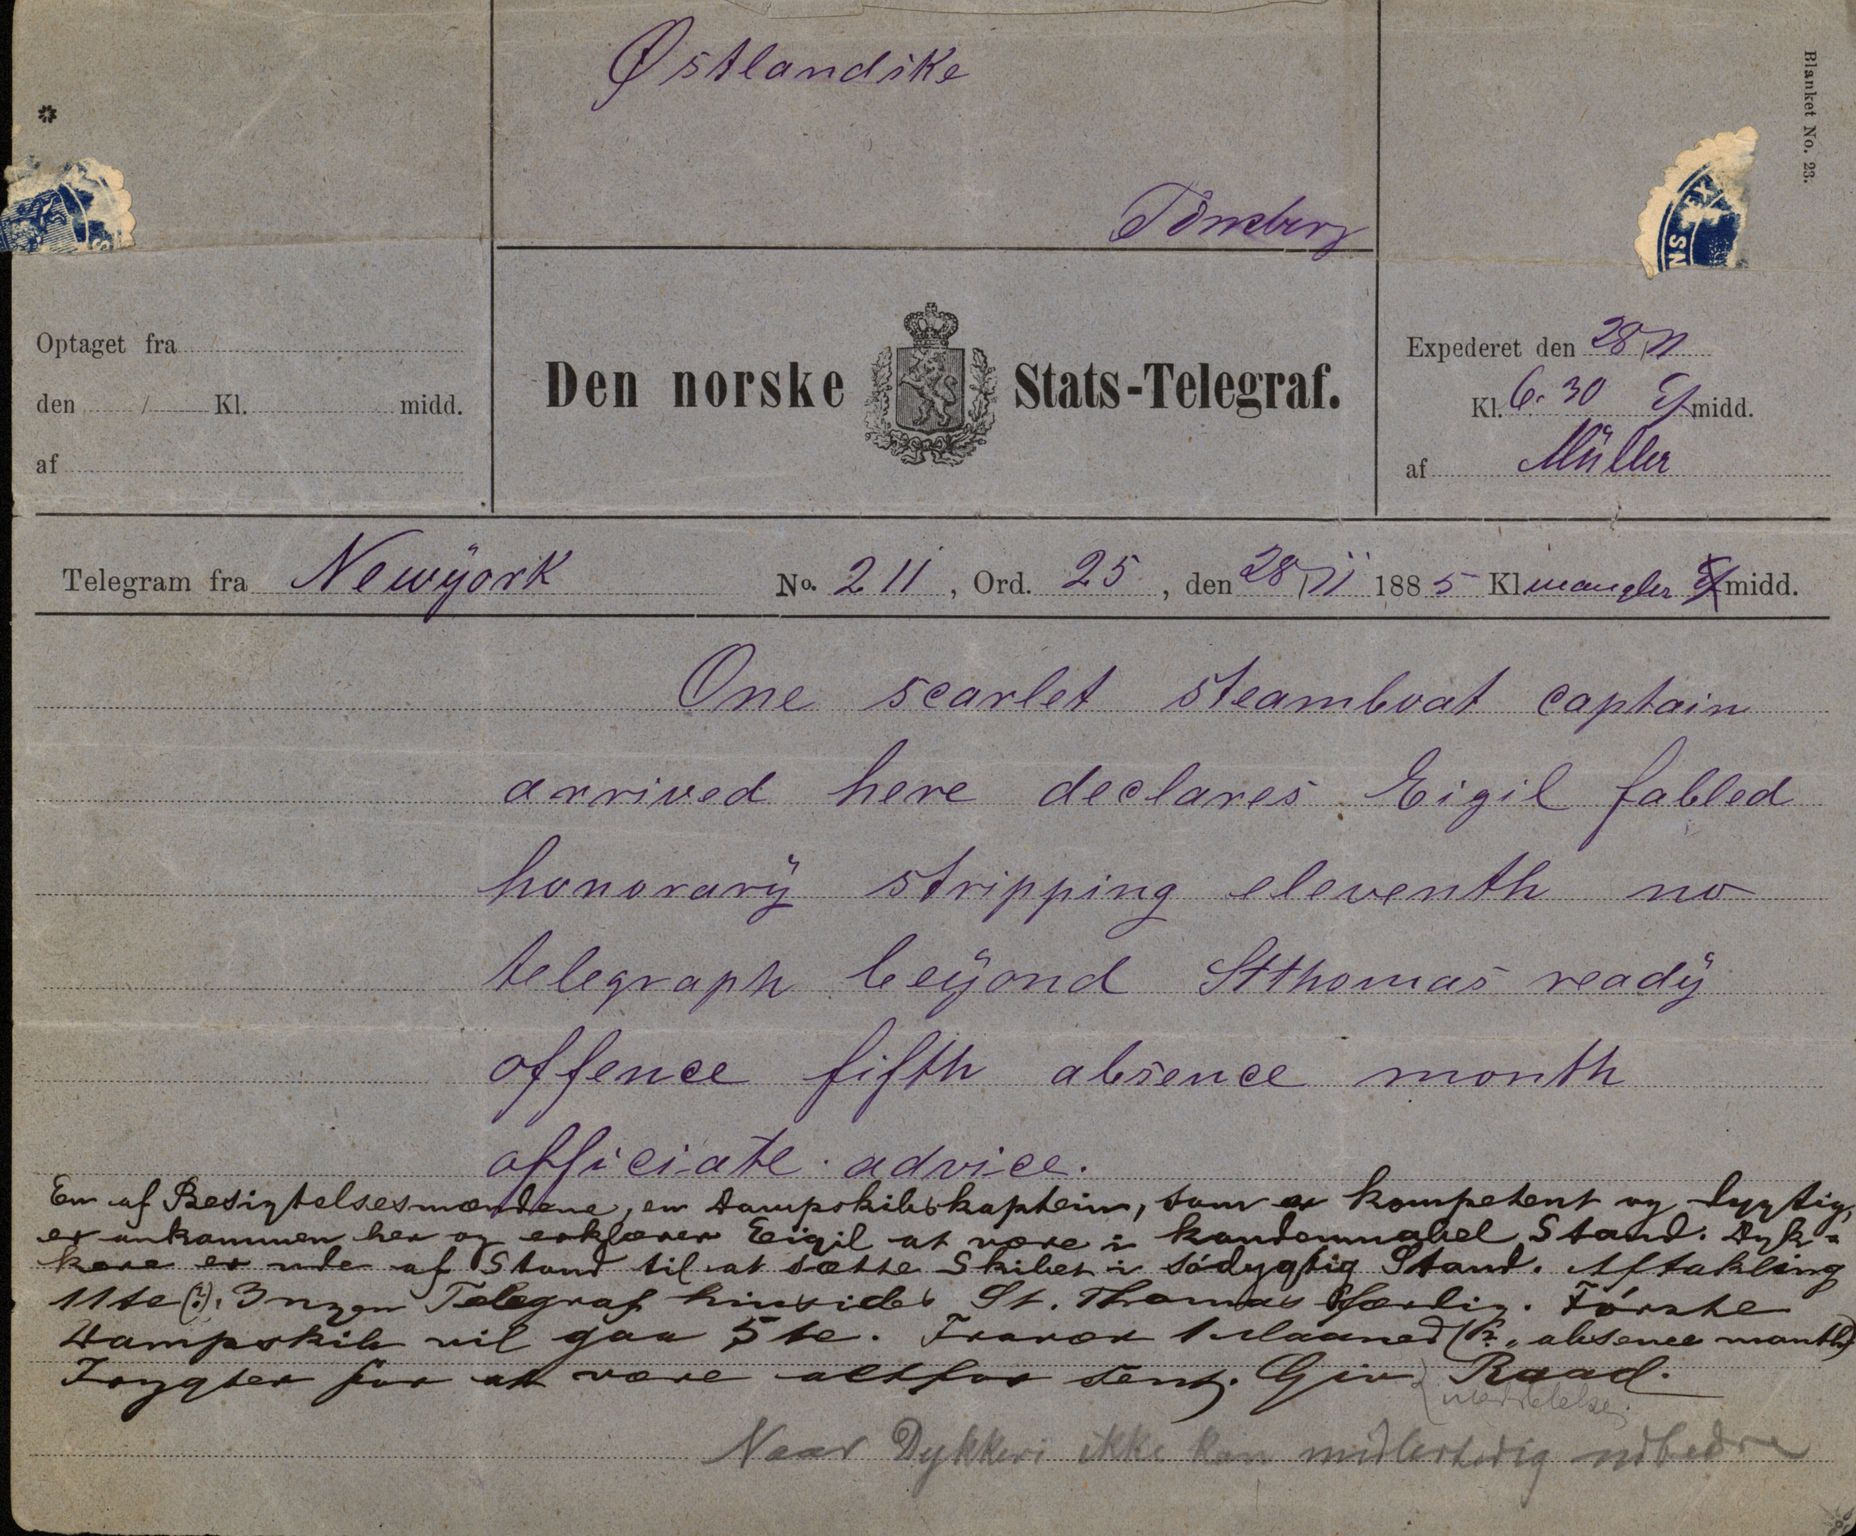 Østlandske
Tönsberg
Blanket No. 23.
Optaget fra
den / Kl. midd.
af
Den norske Stats-Telegraf.
Expederet den 28/11
Kl. 6.30 Ef midd.
af Müller
Telegram fra Newÿork No. 211, Ord. 25, den 28/11 1885 Kl mangler Ef midd.
One scarlet steamboat captain
arrived here declares Eigil fabled
honorarÿ stripping eleventh no
telegraph beÿond Stthomas readÿ
offence fifth absence month
officiate advice.
En af Besigtelsesmændene, en Dampskibskaptein, som er kompetent og dygtig,
er ankommen her og erklærer Eigil at være i kondemnabel Stand. Dyk-
kere er ude af Stand til at sætte Skibet i södygtig Stand. Aftakling
11te (?). Ingen Telegraf hinsides St. Thomas færdig. Første
Dampskib vil gaa 5te. Fravær 1 Maaned (?: „absence month)
Frygter for at være altfor sent. Giv Raad.
meddelelse.
Naar Dykkeri ikke kan midlertidig udbedre